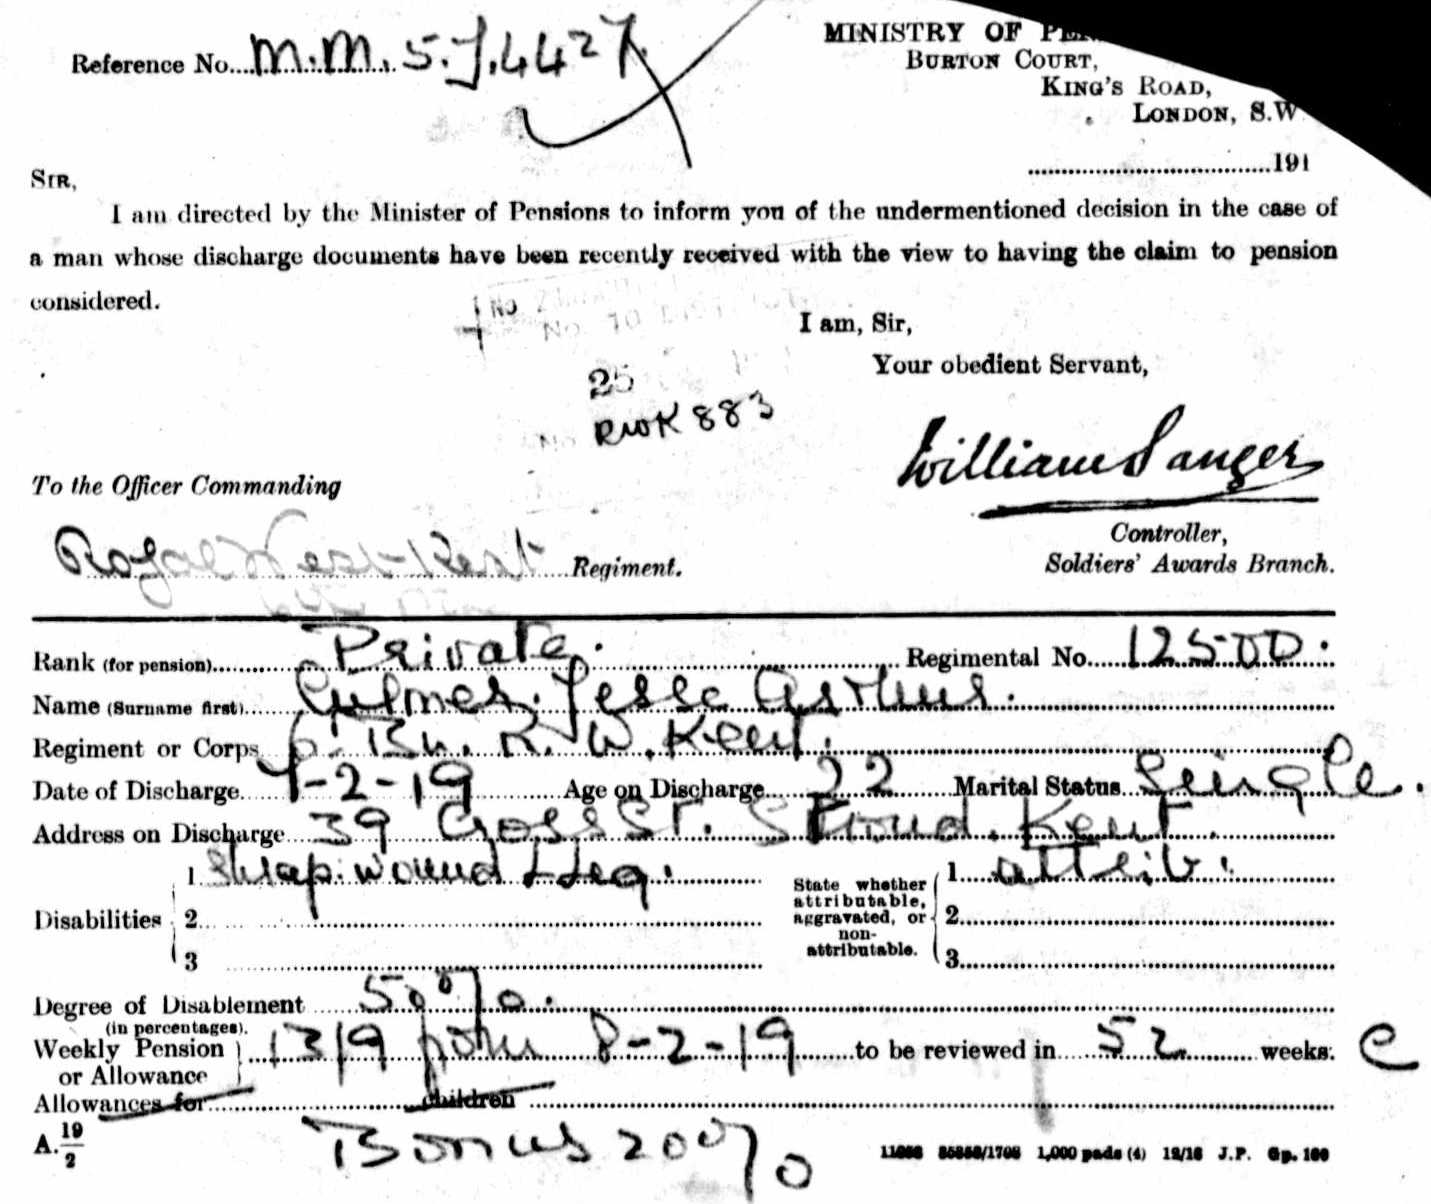 Reference No. M.M. 5.J.4427
MINISTRY OF
BURTON COURT,
KING'S ROAD,
LONDON, S.W.
191
SIR,
I am directed by the Minister of Pensions to inform you of the undermentioned decision in the case of
a man whose discharge documents have been recently received with the view to having the claim to pension
considered.
No
No. 10
I am, Sir,
Your obedient Servant,
25
RWK 883
William Sanger
To the Officer Commanding
Controller,
Royal West Kent Regiment.
Soldiers' Awards Branch.
Rank (for pension) Private. Regimental No. 12500.
Name (Surname first) Jesse Arthur.
Regiment or Corps 6 Bn. R. W. Kent.
Date of Discharge 7-2-19 Age on Discharge 22 Marital Status Single.
Address on Discharge 39 Cross St. Stroud. Kent.
Disabilities 1 Shrap. wound L Leg. State whether attributable, aggravated, or non-attributable. 1 attrib.
2 2
3 3
Degree of Disablement 50%.
(in percentages).
Weekly Pension or Allowance 13/9 from 8-2-19 to be reviewed in 52 weeks. C
Allowances for children
A. 19/2
Bonus 20%
1,000 pads (4) J.P. Gp. 100